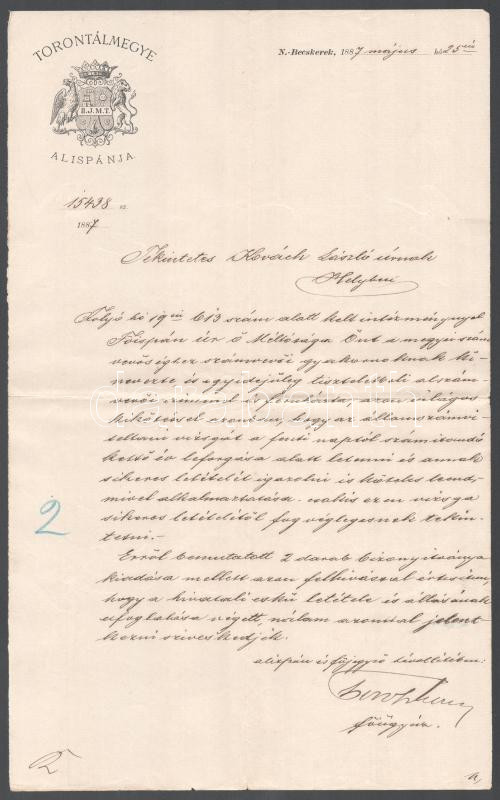 TORONTÁLMEGYE
B.J.M.T.
ALISPÁNJA.
N.-Becskerek, 1887 május hó 25 én
15438 sz.
1887
Tekintetes Kovách László úrnak
Helyben
Folyó hó 19 én 613 szám alatt kelt intézménynyel
Főispán úr ő Méltósága Önt a megyei szám
vevőséghez számvevői gyakornoknak ki
nevezte és egyidejűleg tiszteletbeli alszám
vevői címmel is felruházta, azon világos
kikötéssel azonban, hogy az államszámvi
teltani vizsgát a fenti naptól számítandó
kettő év leforgása alatt letenni és annak
sikeres letételét igazolni is köteles leend,
mivel alkalmaztatása csakis ezen vizsga
sikeres letételétől fog véglegesnek tekin
tetni.-
Erről bemutatott 2 darab bizonyítványa
kiadása mellett azon felhívással értesítem,
hogy a hivatali eskü letétele és állásának
elfoglalása végett, nálam azonnal jelent
kezni sziveskedjék.
alispán és főjegyző távollétében:
főügyész.
2